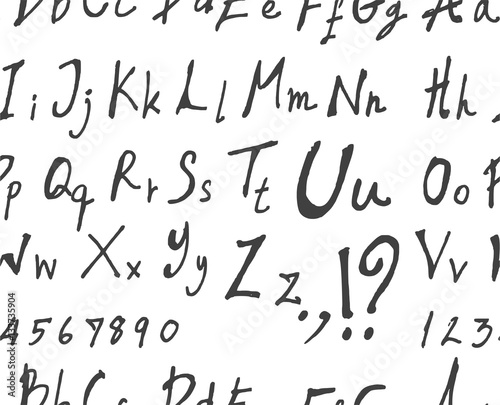 Bb Cc Dd Ee Ff Gg Aa
Ii Jj Kk Ll Mm Nn Hh
Pp Qq Rr Ss Tt Uu Oo P
Ww Xx Yy Zz . , ! ? Vv
4 5 6 7 8 9 0 1 2 3
Bb Cc Dd Ee Ff Gg A